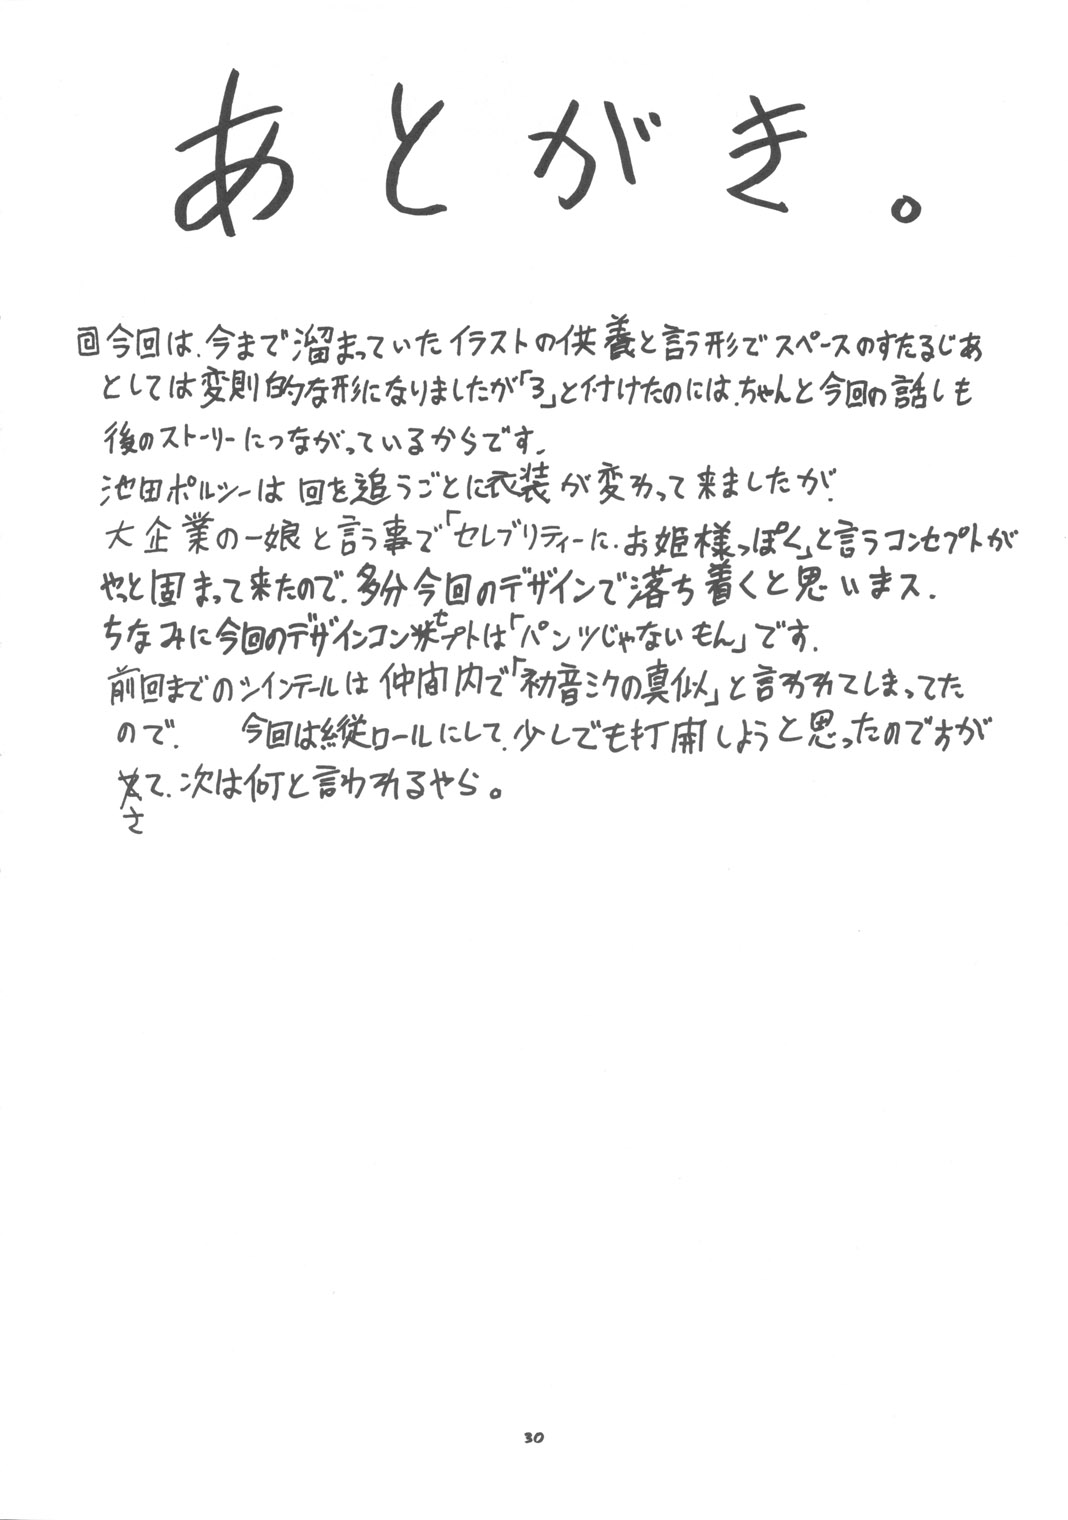 あとがき。
回今回は、今まで溜まっていたイラストの供養と言う形でスペースのすたるじあ
としては変則的な形になりましたが「3」と付けたのには、ちゃんと今回の話しも
後のストーリーにつながっているからです、
池田ポルシーは回を追うごとに衣装が変わって来ましたが、
大企業の一娘と言う事で「セレブリティーに、お姫様っぽく」と言うコンセプトが
やっと固まって来たので、多分今回のデザインで落ち着くと思いまス、
ちなみに今回のデザインコンセプトは「パンツじゃないもん」です、
前回までのツインテールは仲間内で「初音ミクの真似」と言われてしまってた
ので、 今回は縦ロールにして、少しでも打開しようと思ったのですが
さて、次は何と言われるやら。
30